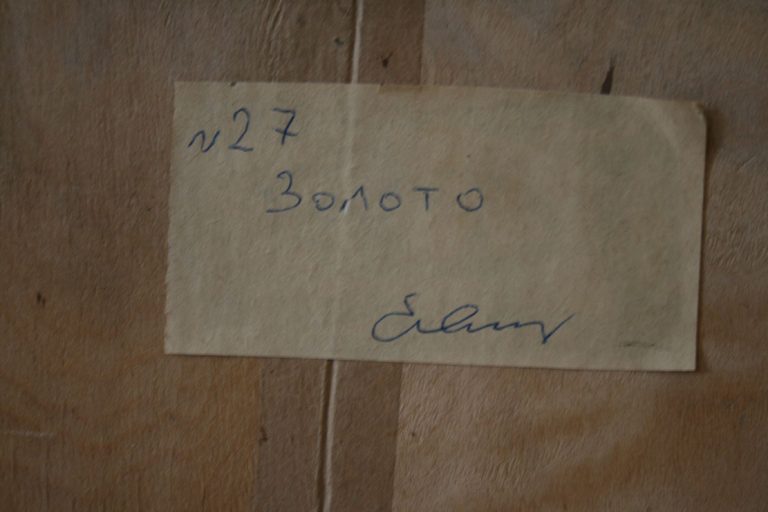 N 27
Золото